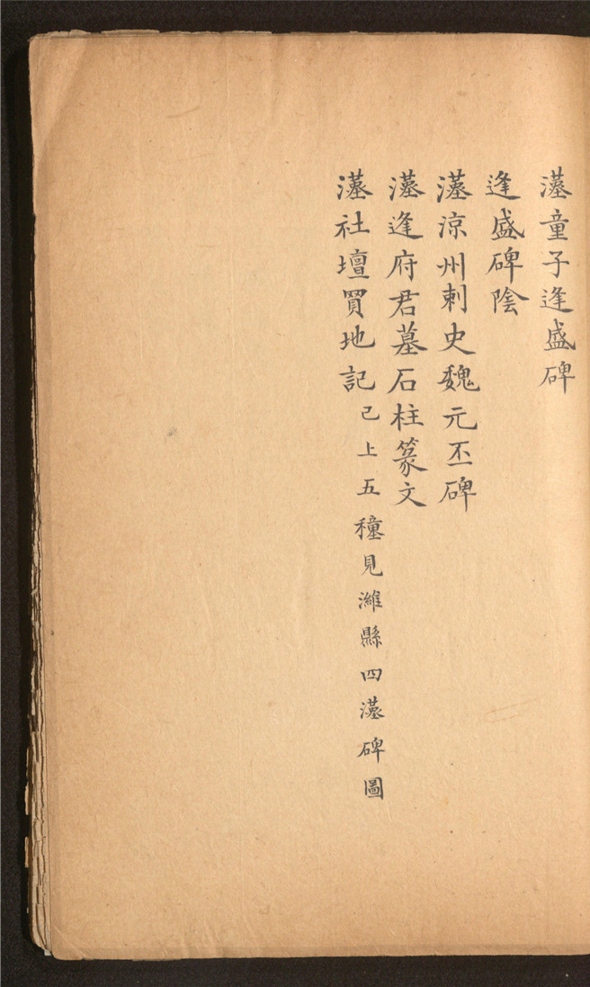 漢童子逢盛碑
逢盛碑陰
漢涼州刺史魏元丕碑
漢逢府君墓石柱篆文
漢社壇買地記己上五種見濰縣四漢碑圖